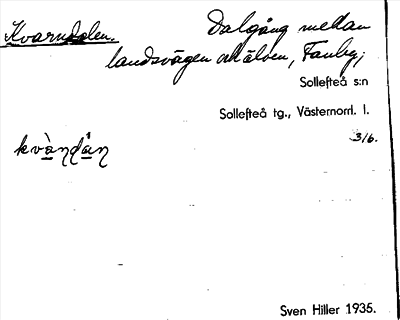 Kvarndalen. Dalgång mellan
landsvägen och älven, Fanby,
Sollefteå s:n
Sollefteå tg., Västernorrl. l.
3/6.
kvàṇdân
Sven Hiller 1935.